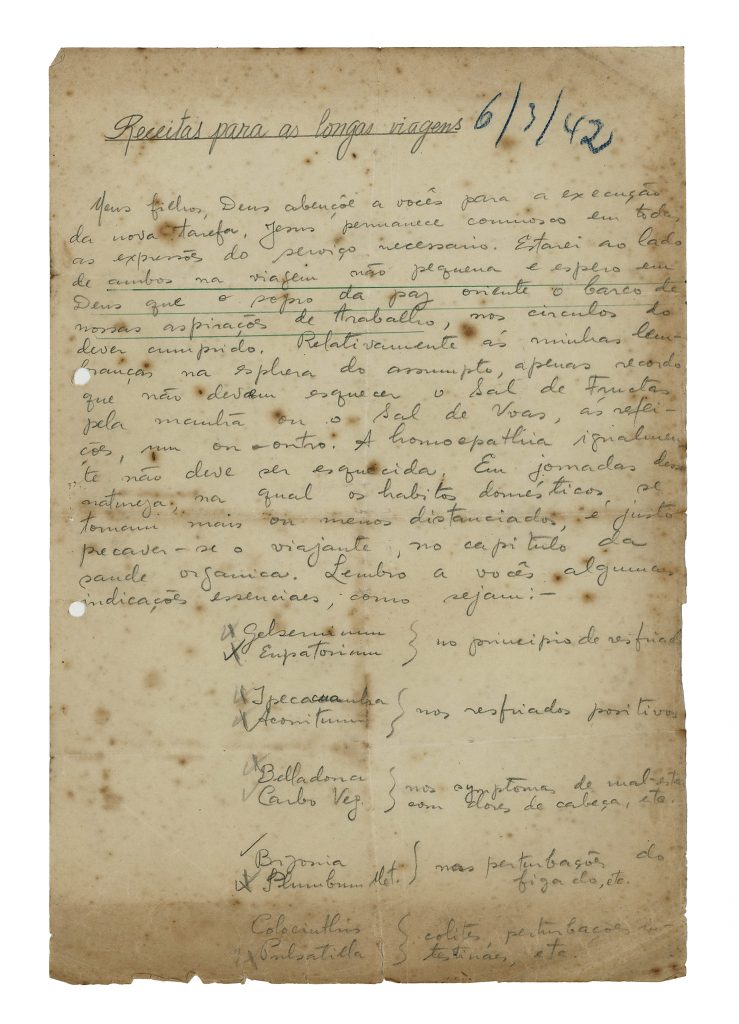 Receitas para as longas viagens 6/3/42
Meus filhos, Deus abençõe a vocês para a execução
da nova tarefa. Jesus permanece comnosco em todas
as expressões do serviço necessario. Estarei ao lado
de ambos na viagem não pequena e espero em
Deus que o sopro da paz oriente o barco de
nossas aspirações de trabalho, nos circulos do
dever cumprido. Relativamente ás minhas lem-
branças na esphera do assumpto, apenas recordo
que não devem esquecer o Sal de Fructas
pela manhã ou o Sal de Uvas, as refei-
ções, um ou outro. A homoepathia igualmen-
te não deve ser esquecida. Em jornadas dess
natureza, na qual os habitos domésticos, se
tornam mais ou menos distanciados, é justo
precaver-se o viajante, no capitulo da
saude organica. Lembro a vocês algumas
indicações essenciaes, como sejam:-
Gelseminum
Eupatorium } no principio de resfriad
Ipecacuanha
Aconitum } nos resfriados positivos
Belladona
Carbo Veg. } nos symptomas de mal-estar
com dores de cabeça, etc.
Brionia
Plumbum Met. } nas perturbações do
figado, etc.
Colocinthis
Pulsatilla } colites, perturbações in-
testinaes, etc.